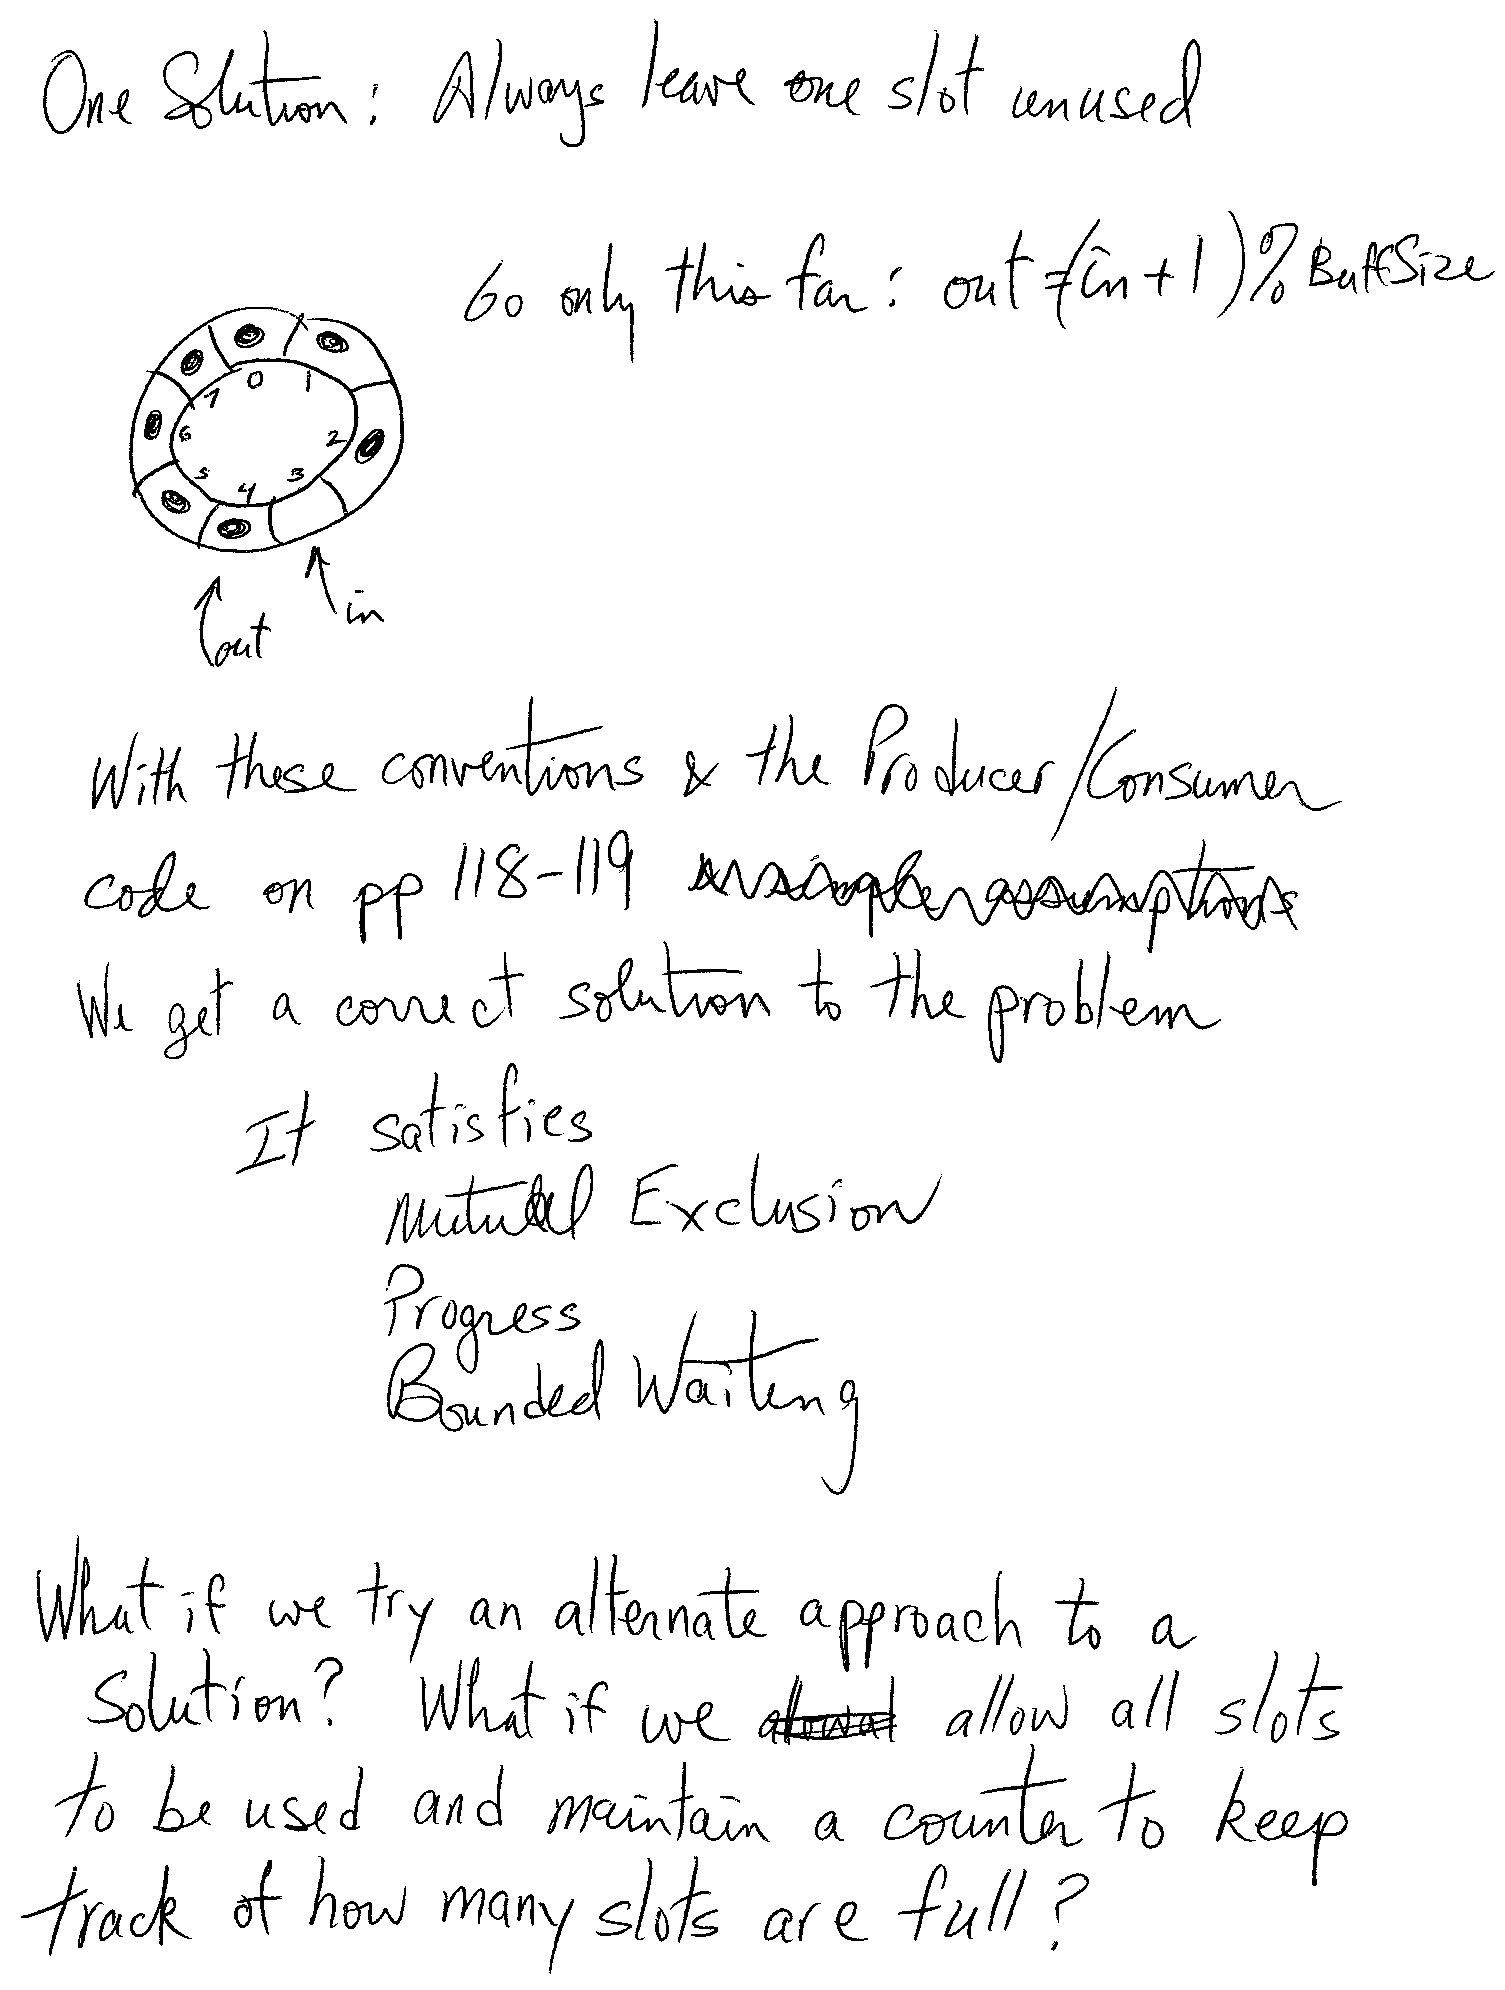 One Solution: Always leave one slot unused
Go only this far: out ≠ (in + 1) % BuffSize
0 1
7
6 2
5 3
4
in
out
With these conventions & the Producer/Consumer
code on pp 118-119 simpler assumptions
We get a correct solution to the problem
It satisfies
Mutual Exclusion
Progress
Bounded Waiting
What if we try an alternate approach to a
Solution? What if we allow all slots
to be used and maintain a counter to keep
track of how many slots are full?